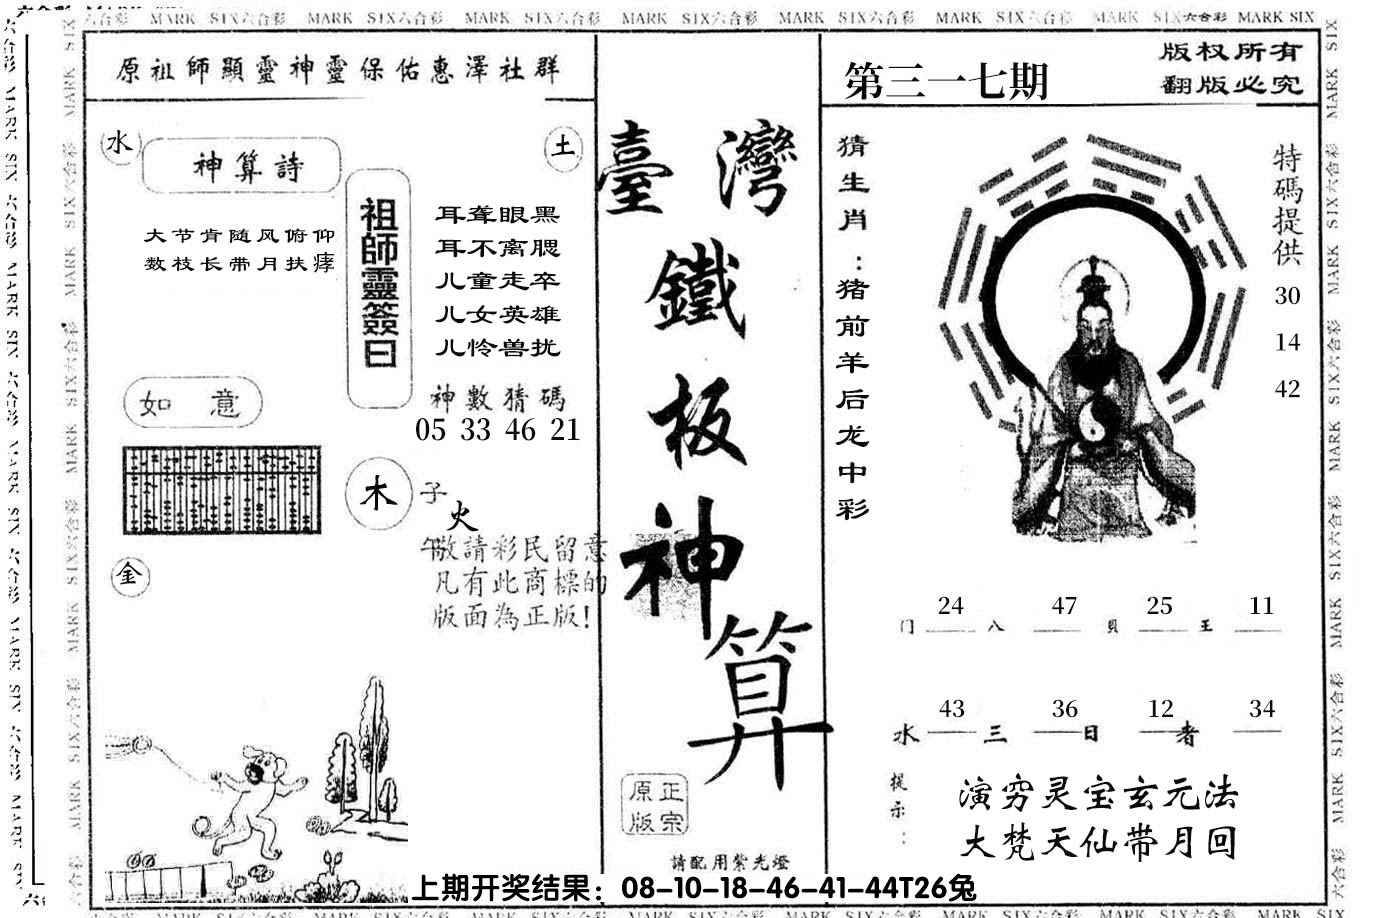 六合彩 MARK SIX六合彩 MARK SIX六合彩 MARK SIX六合彩 MARK SIX六合彩 MARK SIX六合彩 MARK SIX六合彩 MARK SIX六合彩 MARK SIX
原祖師顯靈神靈保佑惠澤社群
水
神算詩
土
大节肯随风俯仰
数枝长带月扶痔
祖師靈簽曰
耳聋眼黑
耳不离腮
儿童走卒
儿女英雄
儿怜兽扰
神數猜碼
05 33 46 21
如意
木
子
火
午
金
敬請彩民留意
凡有此商標的
版面為正版!
臺灣
鐵
板
神
算
正宗
原版
請配用紫光燈
第三一七期
版权所有
翻版必究
猜生肖:猪前羊后龙中彩
特碼提供
30
14
42
24 47 25 11
门 八 貝 王
43 36 12 34
水 三 日 者
提示:
演穷灵宝玄元法
大梵天仙带月回
上期开奖结果：08-10-18-46-41-44T26兔